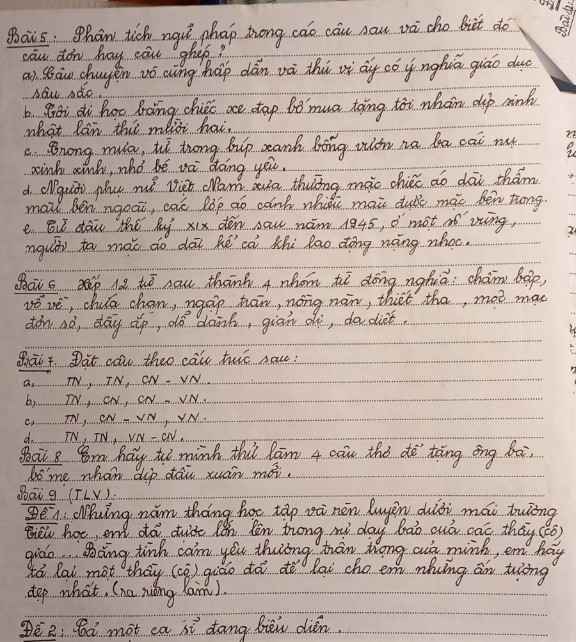 Bài 5: Phân tích ngữ pháp trong các câu sau và cho biết đó
câu đơn hay câu ghép?
a) Câu chuyện vô cùng hấp dẫn và thú vị ấy có ý nghĩa giáo dục
sâu sắc.
b. Tôi đi học bằng chiếc xe đạp bố mua tặng tôi nhân dịp sinh
nhật lần thứ mười hai.
c. Trong mưa, từ trong búp xanh bỗng vươn ra ba cái nụ
xinh xinh, nhỏ bé và đáng yêu.
d. Người phụ nữ Việt Nam xưa thường mặc chiếc áo dài thẫm
màu bên ngoài, các lớp áo cánh nhiều màu được mặc bên trong.
e. Từ đầu thế kỷ XIX đến sau năm 1945, ở một số vùng,
người ta mặc áo dài kể cả khi lao động nặng nhọc.
Bài 6 xếp 12 từ sau thành 4 nhóm từ đồng nghĩa: chăm bặp,
vỗ về, chứa chan, ngập tràn, nồng nàn, thiết tha, mộc mạc
đơn sơ, đầy ắp, dỗ dành, giản dị, da diết.
Bài 7. Đặt câu theo cấu trúc sau:
a. TN, TN, CN - VN.
b) TN, CN, CN - VN.
c, TN, CN - VN, VN.
d. TN, TN, VN - CN.
Bài 8 Em hãy tự mình thử làm 4 câu thơ để tặng ông bà,
bố mẹ nhân dịp đầu xuân mới.
Bài 9 (TLV).
Đề 1: Những năm tháng học tập và rèn luyện dưới mái trường
Tiểu học, em đã được lớn lên trong sự dạy bảo của các thầy (cô)
giáo... Bằng tình cảm yêu thương trân trọng của mình, em hãy
tả lại một thầy (cô) giáo đã để lại cho em những ấn tượng
đẹp nhất. (ra riêng làm).
Đề 2: Tả một ca sĩ đang biểu diễn.